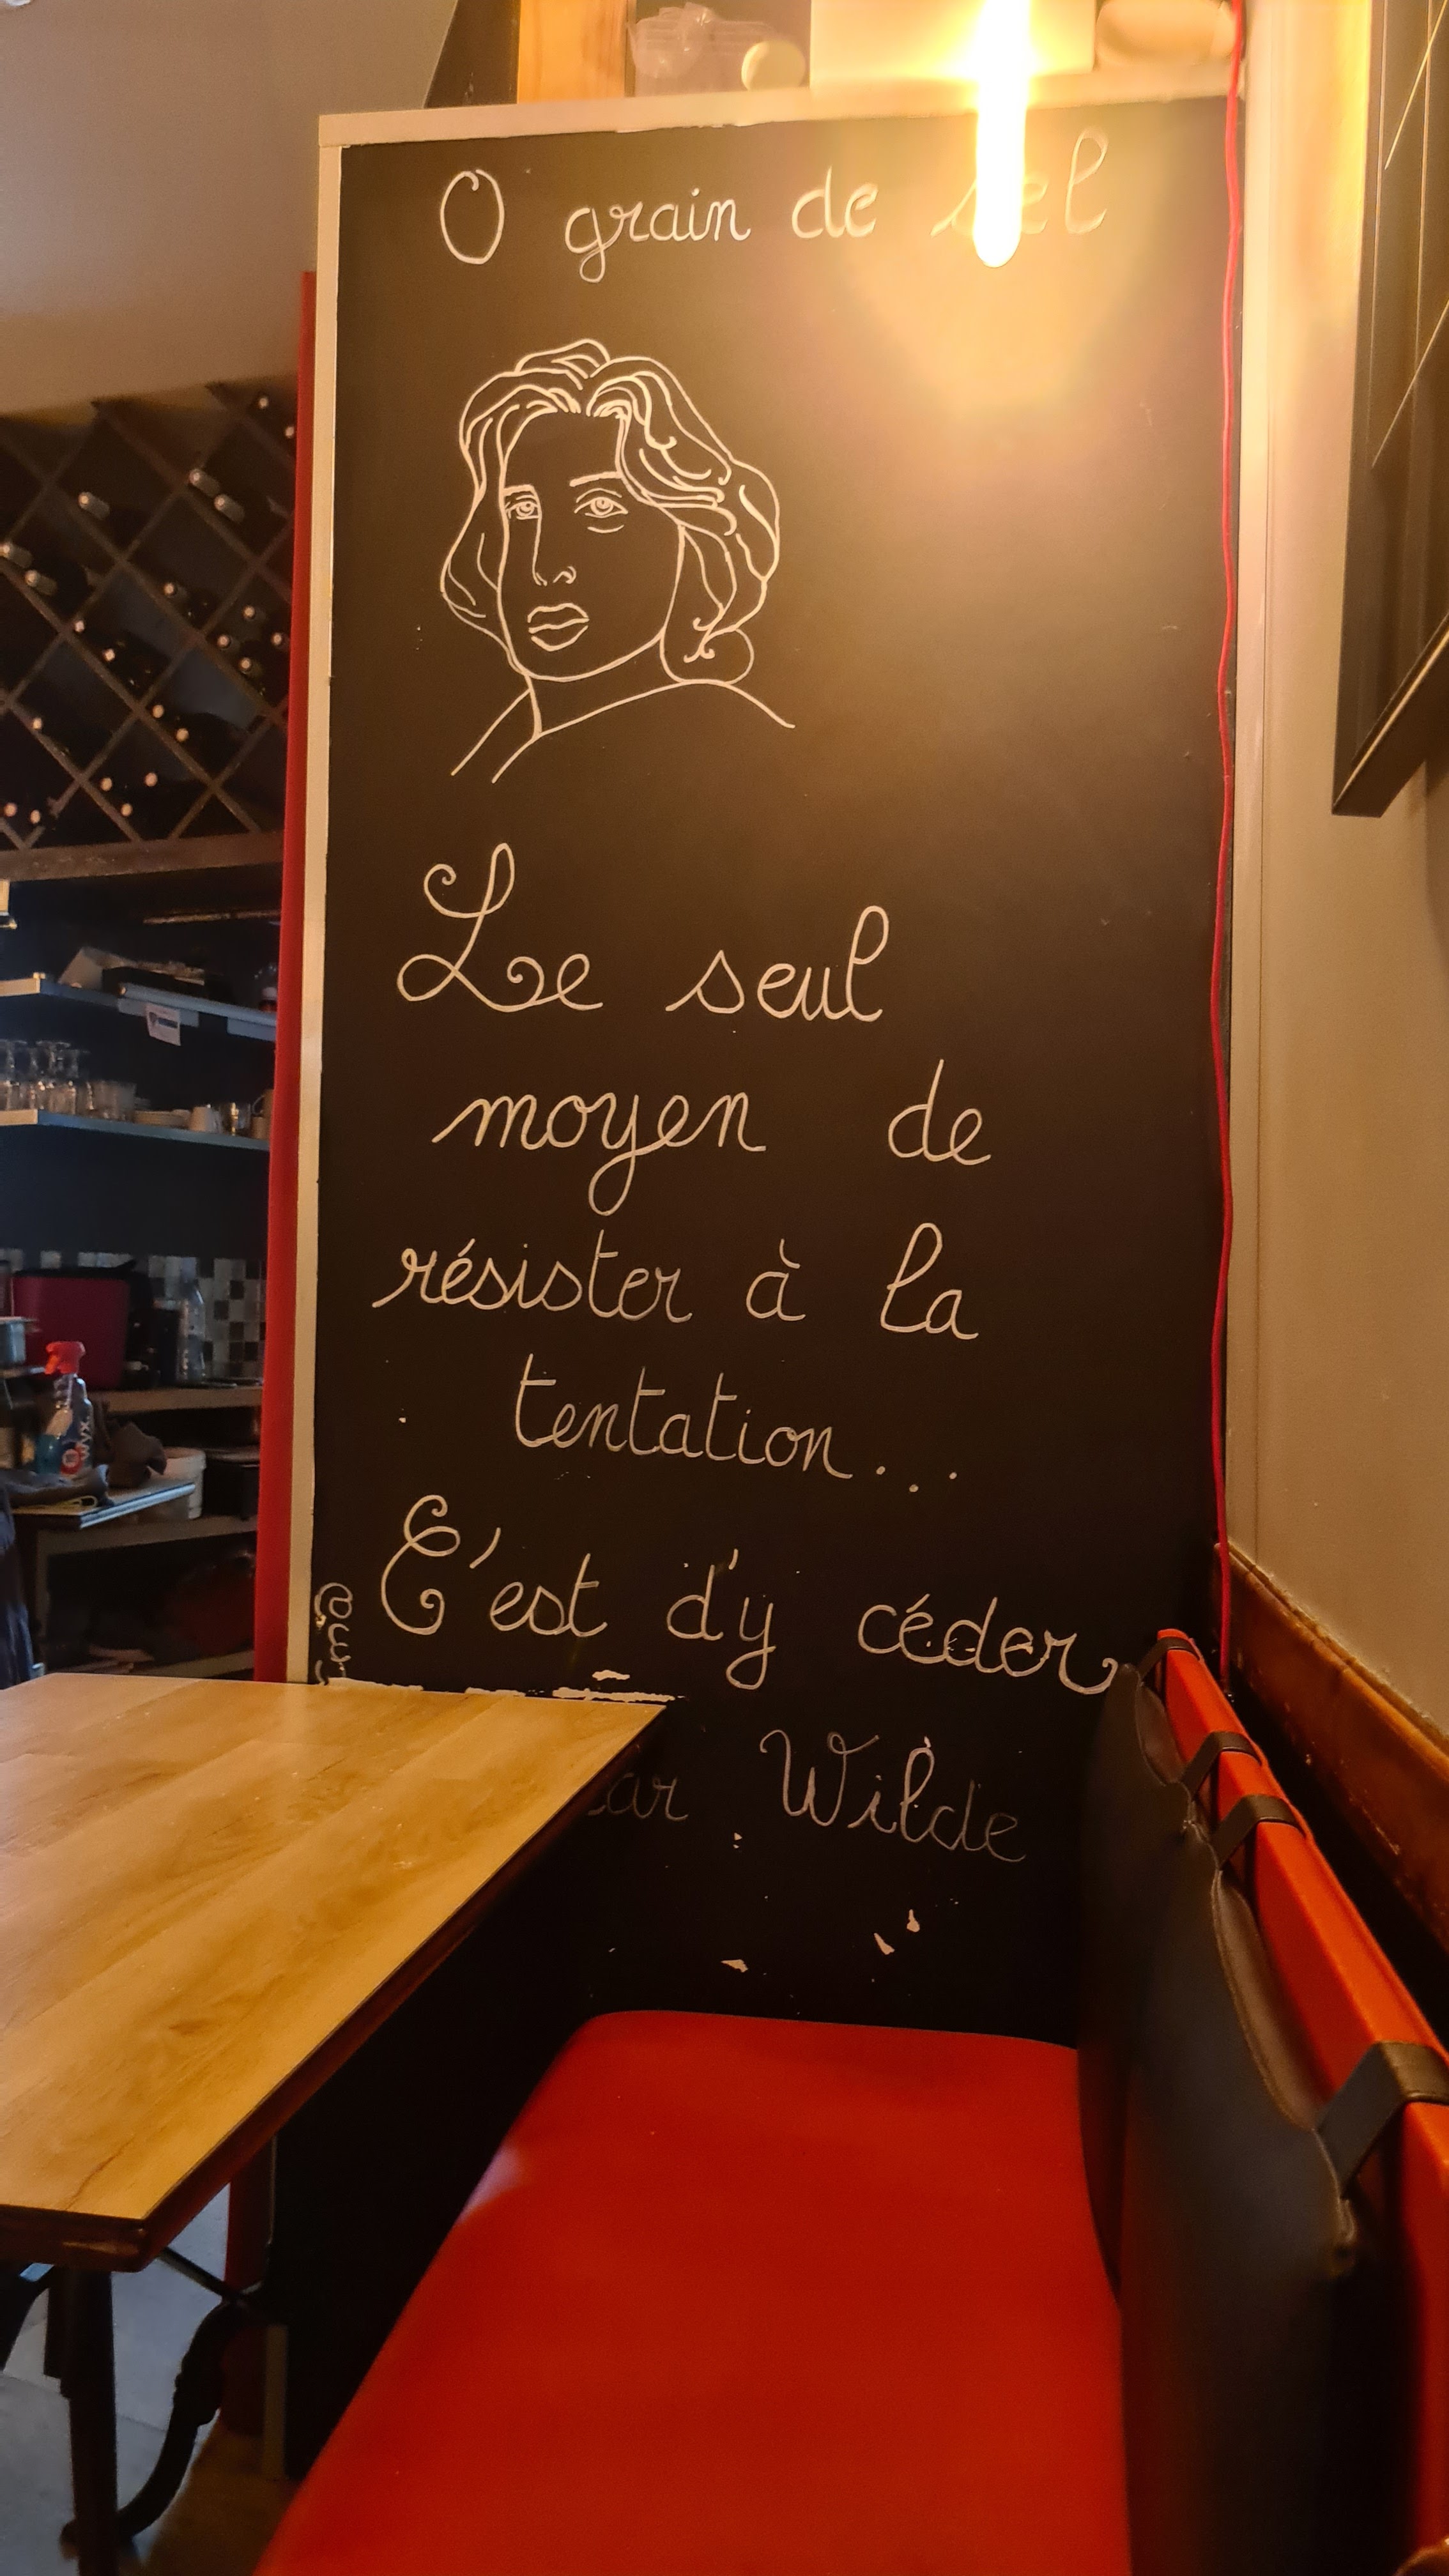 O grain de sel
Le seul
moyen de
résister à la
tentation...
C'est d'y céder
Wilde